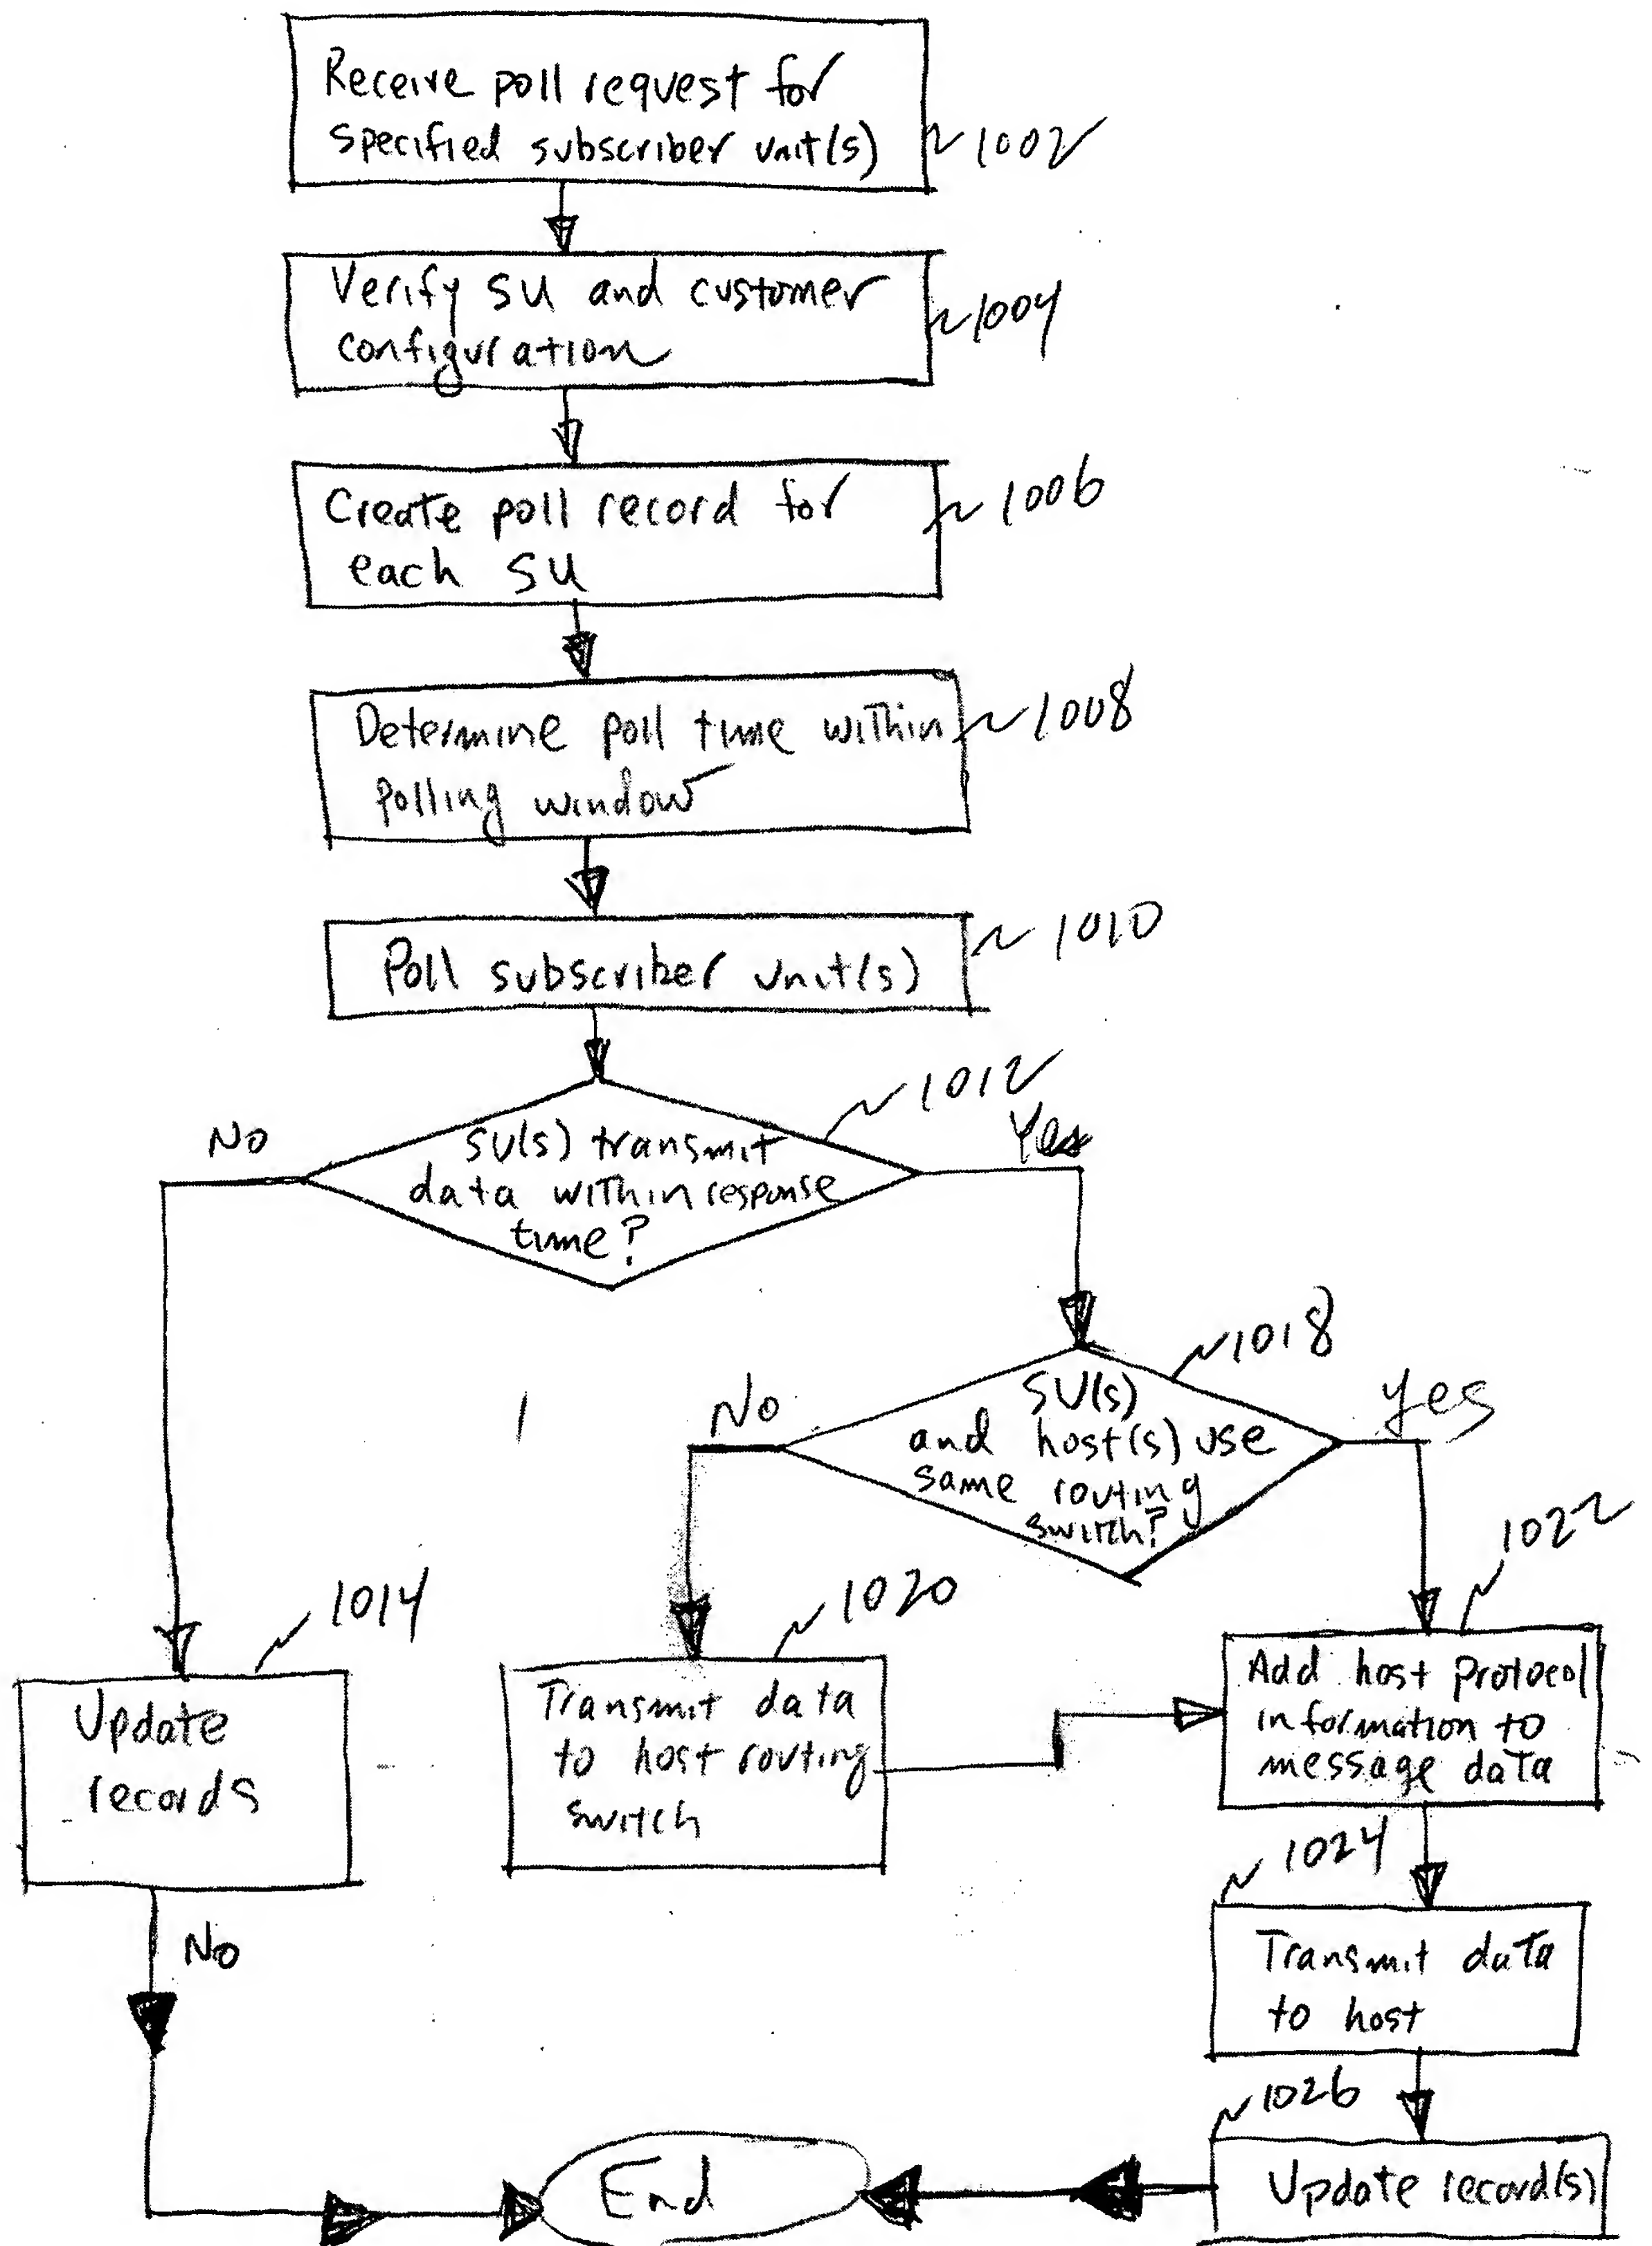 Receive poll request for
specified subscriber unit(s)
1002
Verify SU and customer
configuration
1004
Create poll record for
each SU
1006
Determine poll time within
polling window
1008
Poll subscriber unit(s)
1010
1012
No
Yes
SU(s) transmit
data within response
time?
1018
No
Yes
SU(s)
and host(s) use
same routing
switch?
1022
1014
1020
Update
records
Transmit data
to host routing
switch
Add host protocol
information to
message data
1024
No
Transmit data
to host
1026
End
Update record(s)